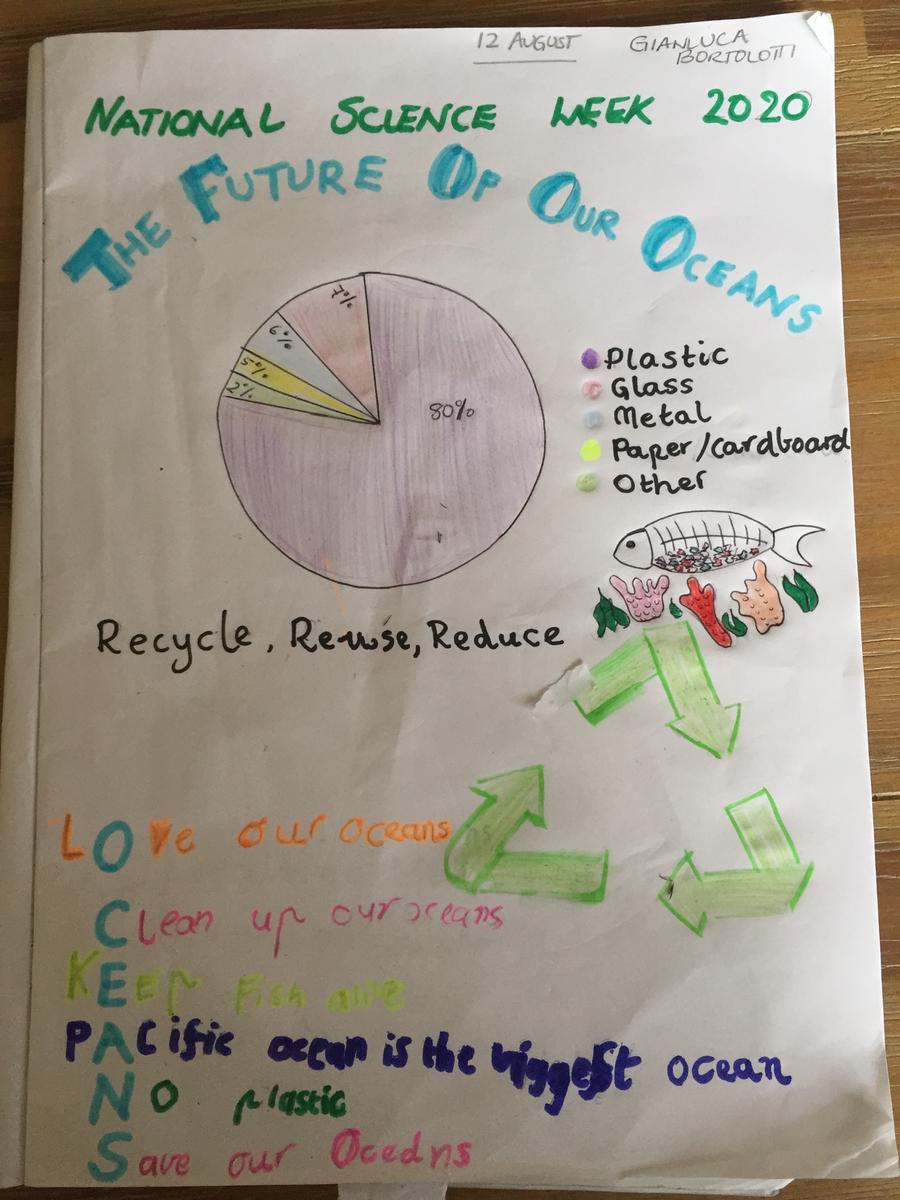 12 AUGUST
GIANLUCA
BORTOLOTTI
NATIONAL SCIENCE WEEK 2020
THE FUTURE OF OUR OCEANS
7%
6%
5%
2%
80%
Plastic
Glass
Metal
Paper/cardboard
Other
Recycle, Re-use, Reduce
LOVe our oceans
Clean up our oceans
KEEp Fish alive
PACific ocean is the biggest ocean
NO plastic
Save our Oceans